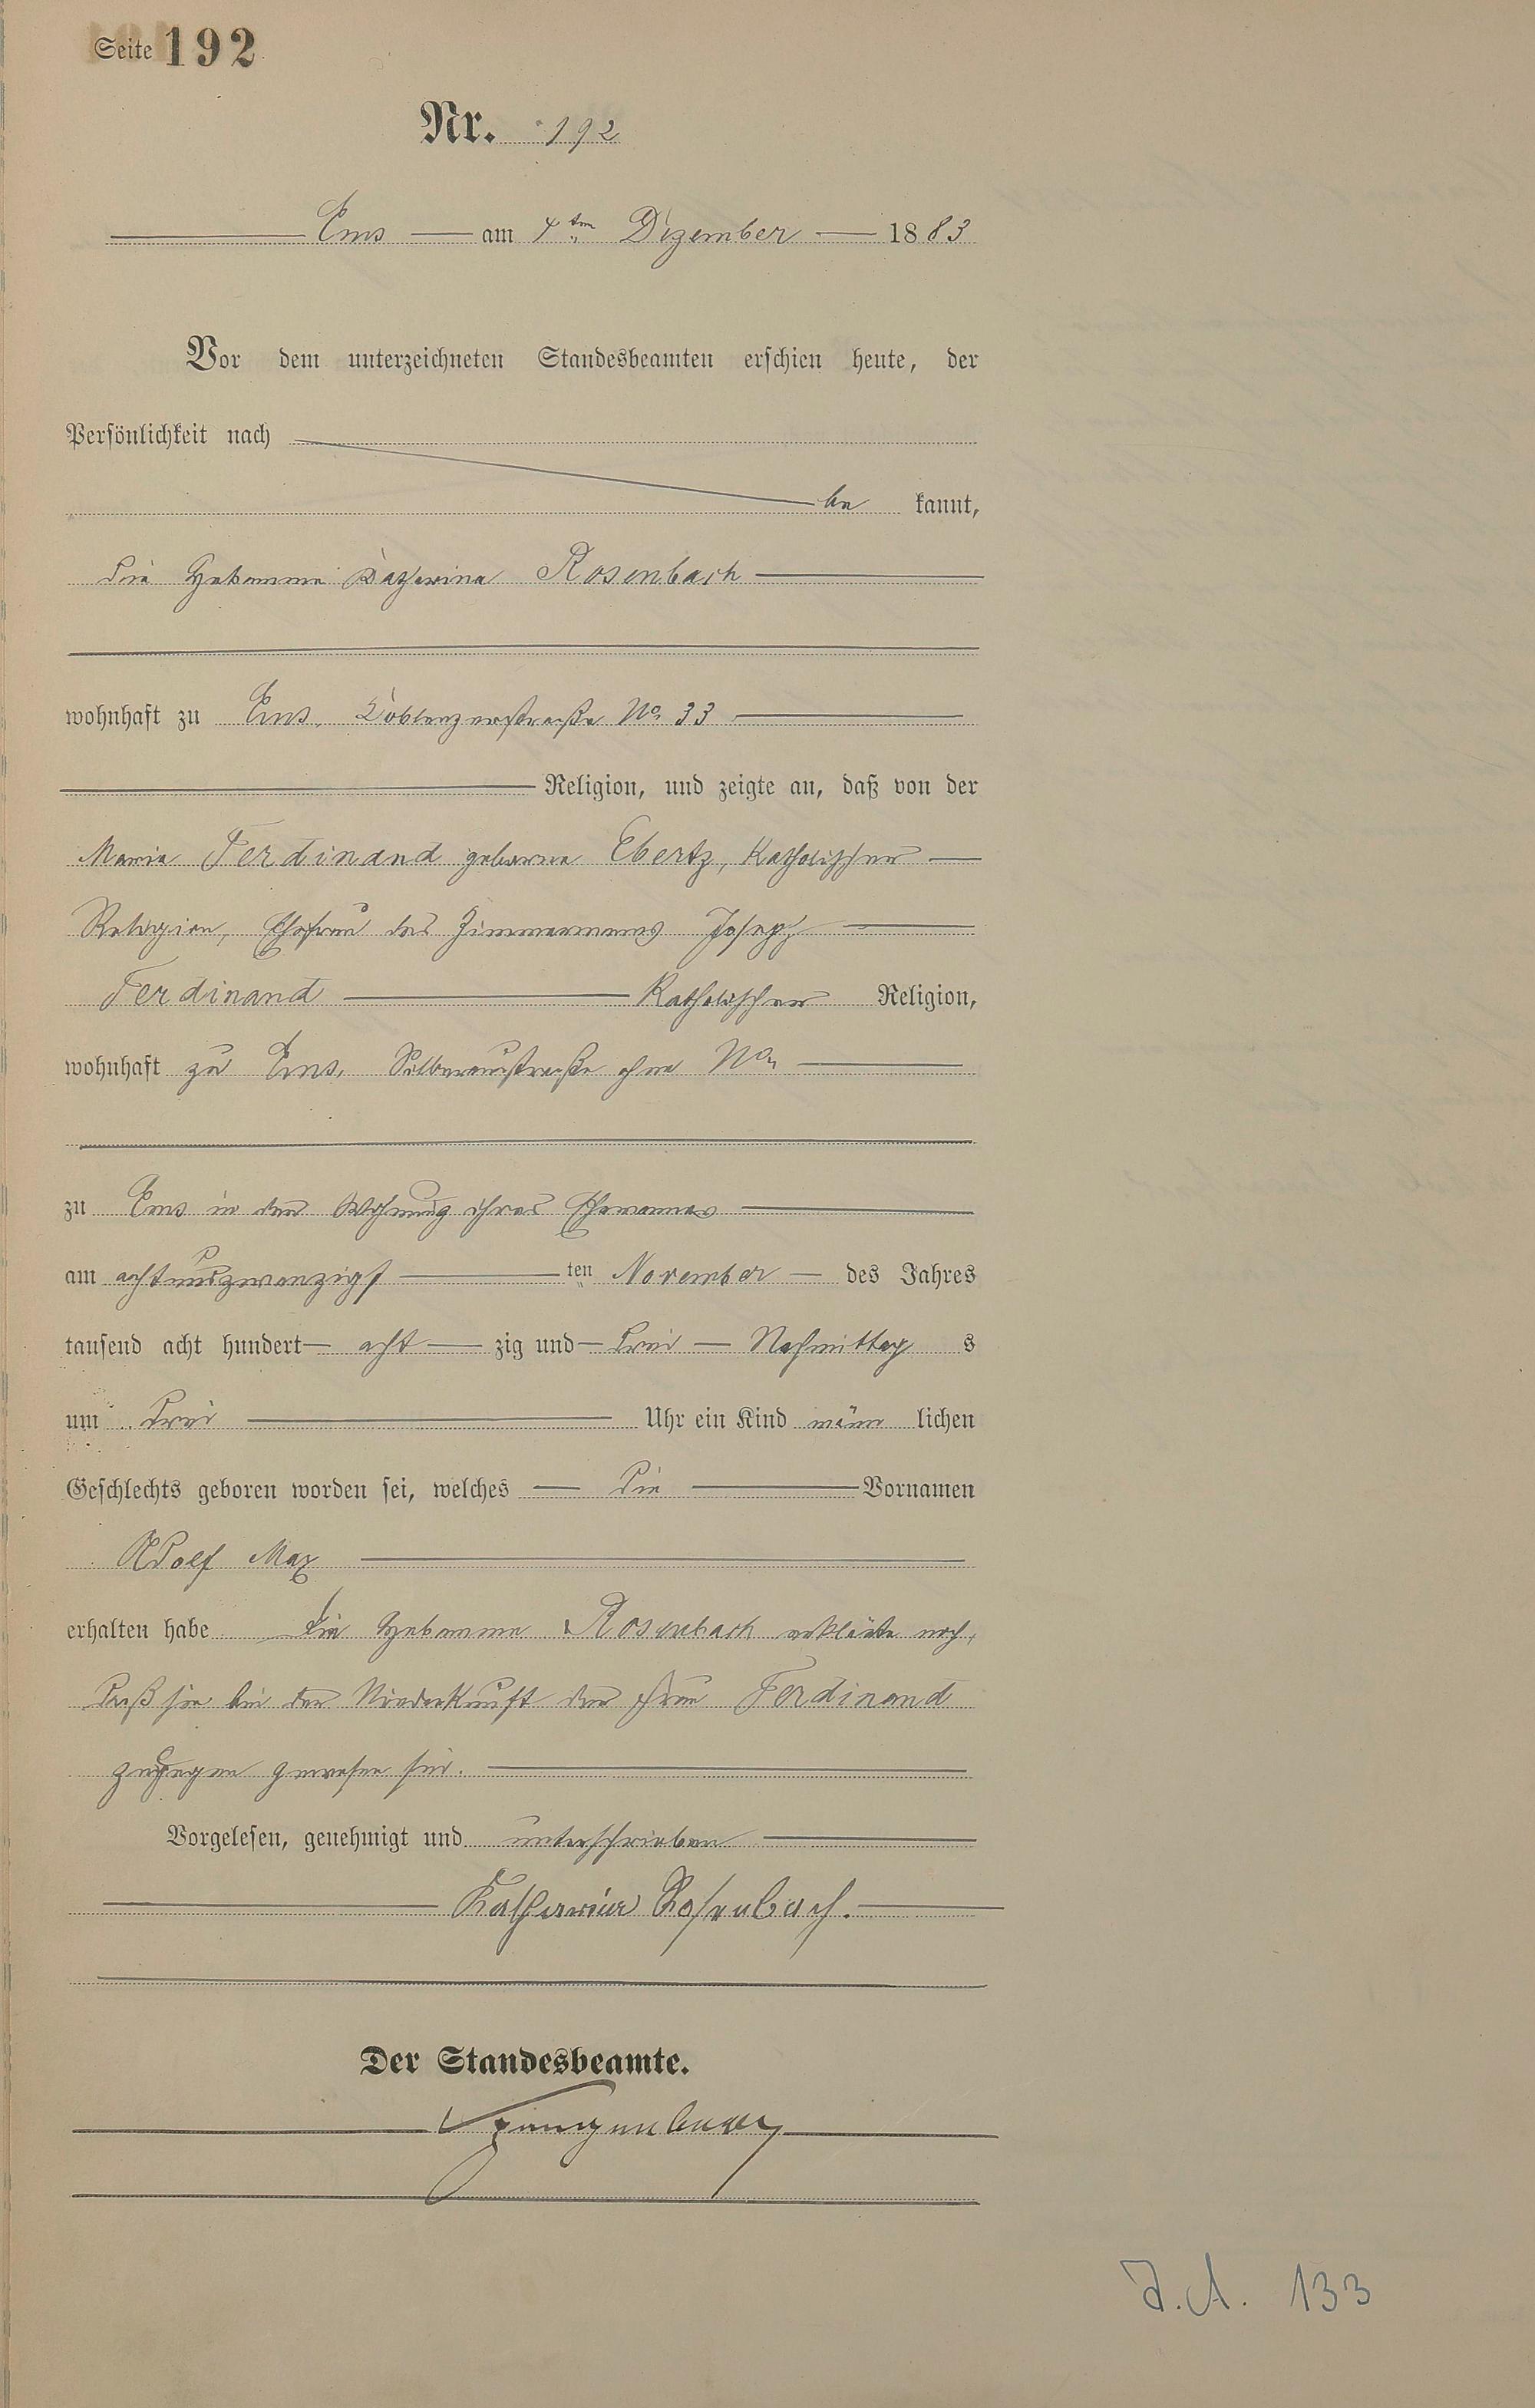 Seite 192
Nr. 192
Ems am 4ten Dezember 1883
Vor dem unterzeichneten Standesbeamten erschien heute, der
Persönlichkeit nach
be kannt,
die Hebamme Katharina Rosenbach
wohnhaft zu Ems, Coblenzerstraße No. 33
Religion, und zeigte an, daß von der
Maria Ferdinand geborene Ebertz, katholischer
Religion, Ehefrau des Zimmermanns Joseph
Ferdinand katholischer Religion,
wohnhaft zu Ems, Silberaustraße ohne No.
zu Ems in der Wohnung ihres Ehemannes
am achtundzwanzigsten November des Jahres
tausend acht hundert achtzig und drei Nachmittags
um drei Uhr ein Kind männlichen
Geschlechts geboren worden sei, welches die Vornamen
Adolf Max
erhalten habe die Hebamme Rosenbach erklärte noch,
daß sie bei der Niederkunft der Frau Ferdinand
zugegen gewesen sei.
Vorgelesen, genehmigt und unterschrieben
Katharina Rosenbach.
Der Standesbeamte.
J.A. 133